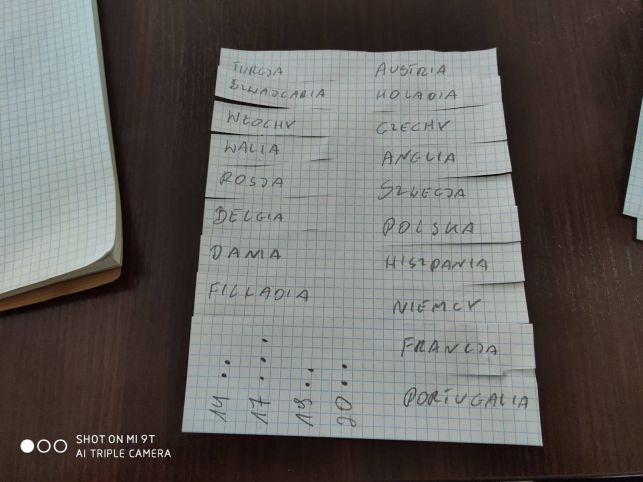 TURCJA AUSTRIA
SZWAJCARIA HOLADIA
WŁOCHY CZECHY
WALIA ANGLIA
ROSJA SZWECJA
BELGIA POLSKA
DANIA HISZPANIA
FILLADIA NIEMCY
FRANCJA
PORTUGALIA
14..
17....
19..
20..
SHOT ON MI 9T
AI TRIPLE CAMERA